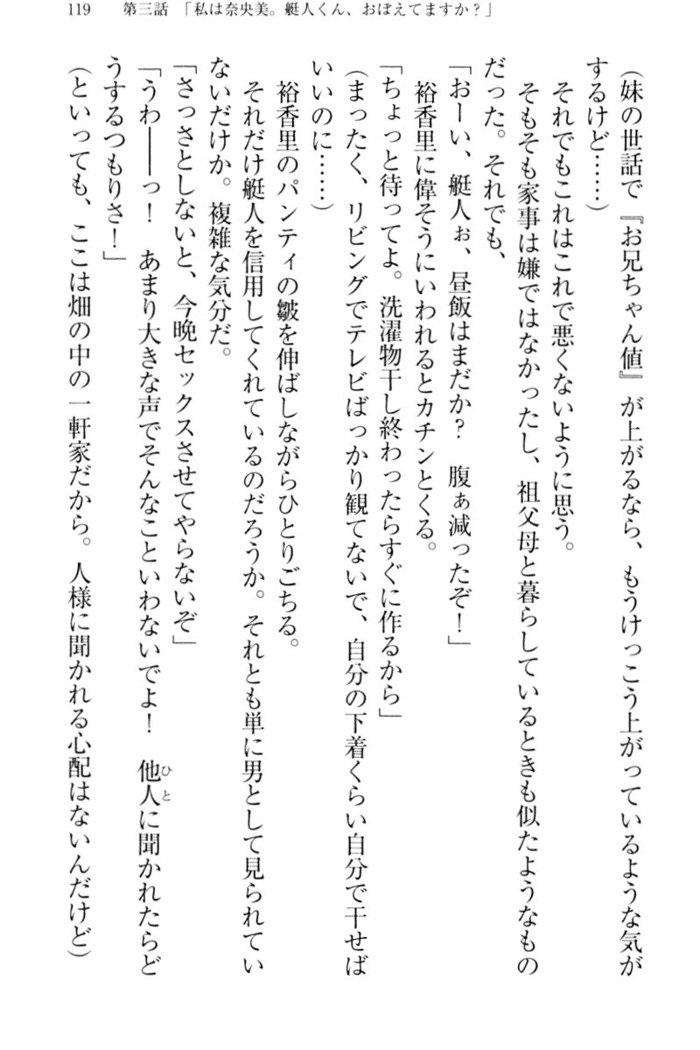 119　第三話　「私は奈央美。艇人くん、おぼえてますか？」
（妹の世話で『お兄ちゃん値』が上がるなら、もうけっこう上がっているような気が
するけど……）
　それでもこれはこれで悪くないように思う。
　そもそも家事は嫌ではなかったし、祖父母と暮らしているときも似たようなもの
だった。それでも、
「おーい、艇人ぉ、昼飯はまだか？　腹ぁ減ったぞ！」
　裕香里に偉そうにいわれるとカチンとくる。
「ちょっと待ってよ。洗濯物干し終わったらすぐに作るから」
（まったく、リビングでテレビばっかり観てないで、自分の下着くらい自分で干せば
いいのに……）
　裕香里のパンティの皺を伸ばしながらひとりごちる。
　それだけ艇人を信用してくれているのだろうか。それとも単に男として見られてい
ないだけか。複雑な気分だ。
「さっさとしないと、今晩セックスさせてやらないぞ」
「うわ――っ！　あまり大きな声でそんなこといわないでよ！　他人ひとに聞かれたらど
うするつもりさ！」
（といっても、ここは畑の中の一軒家だから。人様に聞かれる心配はないんだけど）